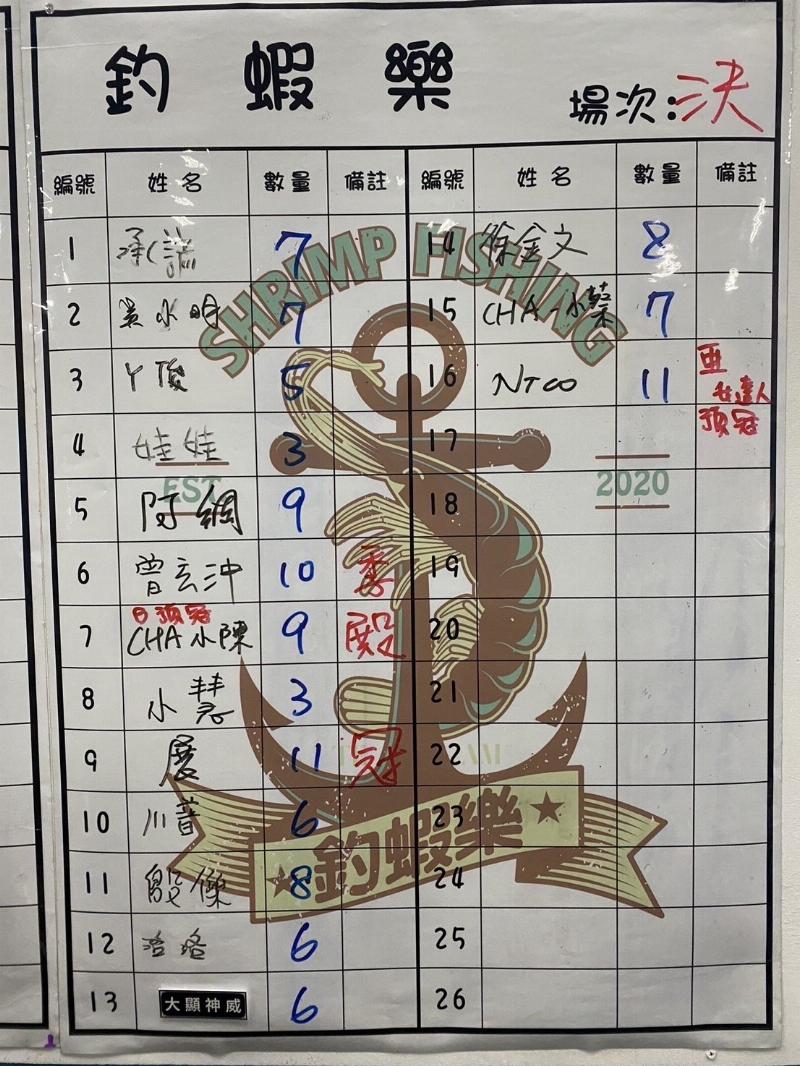 釣 蝦 樂
場次:決
編號 姓名 數量 備註 編號 姓名 數量 備註
1 7 14 徐金文 8
2 黃水明 7 15 CHA-小蔡 7
3 ㄚ俊 5 16 NTCO 11 亞 女達人 預冠
4 娃娃 3 17
5 阿綢 9 18
6 曾玄沖 10 季 19
7 日預冠 CHA小陳 9 殿 20
8 小慧 3 21
9 展 11 冠 22
10 川普 6 23
11 殷傑 8 24
12 洛洛 6 25
13 大顯神威 6 26
SHRIMP FISHING
EST 2020
釣蝦樂